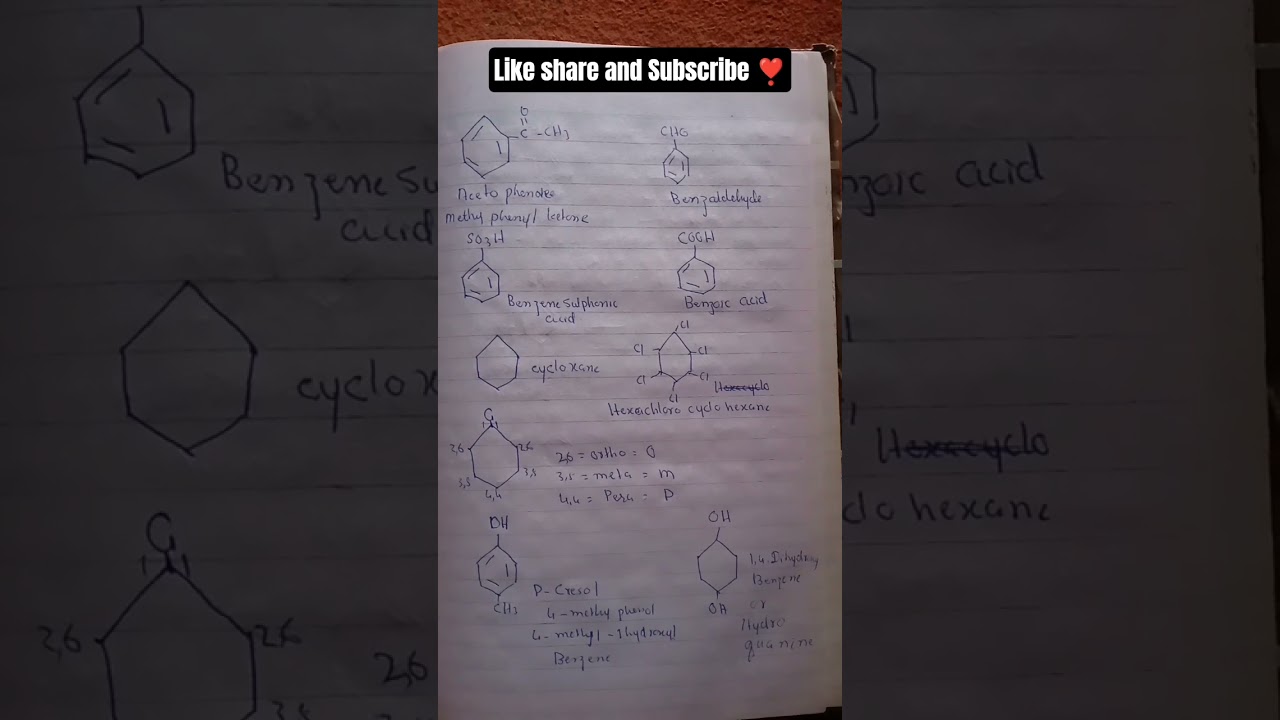 Like share and Subscribe ❤️
O
C -CH3
CHO
Aceto phenone
Benzaldehyde
Methyl phenyl ketone
SO3H
COOH
Benzene sulphonic
acid
Benzoic acid
Cl
Cl
Cl
cycloxane
Cl
Cl
Hexacyclo
Cl
Hexachloro cyclo hexane
G
1
1
2,6
2,6
2,6 = ortho = O
3,5
3,5
3,5 = meta = m
4,4
4,4 = Pera = P
OH
OH
1,4 Dihydroxy
Benzene
P-Cresol
CH3
OH
or
4-methyl phenol
Hydro
4-methyl-1hydroxyl
quanine
Benzene